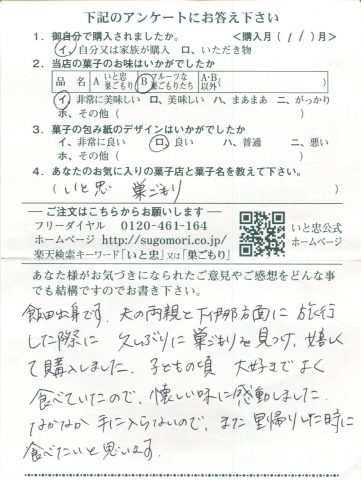 下記のアンケートにお答え下さい
1．御自分で購入されましたか。 ＜購入月（ 11 ）月＞
イ、自分又は家族が購入 ロ、いただき物
2．当店の菓子のお味はいかがでしたか
品 名 A いと忠巣ごもり B フルーツな巣ごもりたち A･B以外（ ）
イ、非常に美味しい ロ、美味しい ハ、まぁまぁ ニ、がっかり
ホ、その他（ ）
3．菓子の包み紙のデザインはいかがでしたか
イ、非常に良い ロ、良い ハ、普通 ニ、悪い
ホ、その他（ ）
4．あなたのお気に入りの菓子店と菓子名を教えて下さい。
（ いと忠 巣ごもり ）
― ご注文はこちらからお願いします ―
フリーダイヤル 0120-461-164
ホームページ http://sugomori.co.jp/
楽天検索キーワード「いと忠」又は「巣ごもり」
いと忠公式
ホームページ
あなた様がお気づきになられたご意見やご感想をどんな事
でも結構ですのでお書き下さい。
飯田出身です。夫の両親と下伊那方面に旅行
した際に 久しぶりに巣ごもりを見つけ、嬉しく
て購入しました。子どもの頃 大好きでよく
食べていたので、懐しい味に感動しました。
なかなか手に入らないので、また里帰りした時に
食べたいと思います。